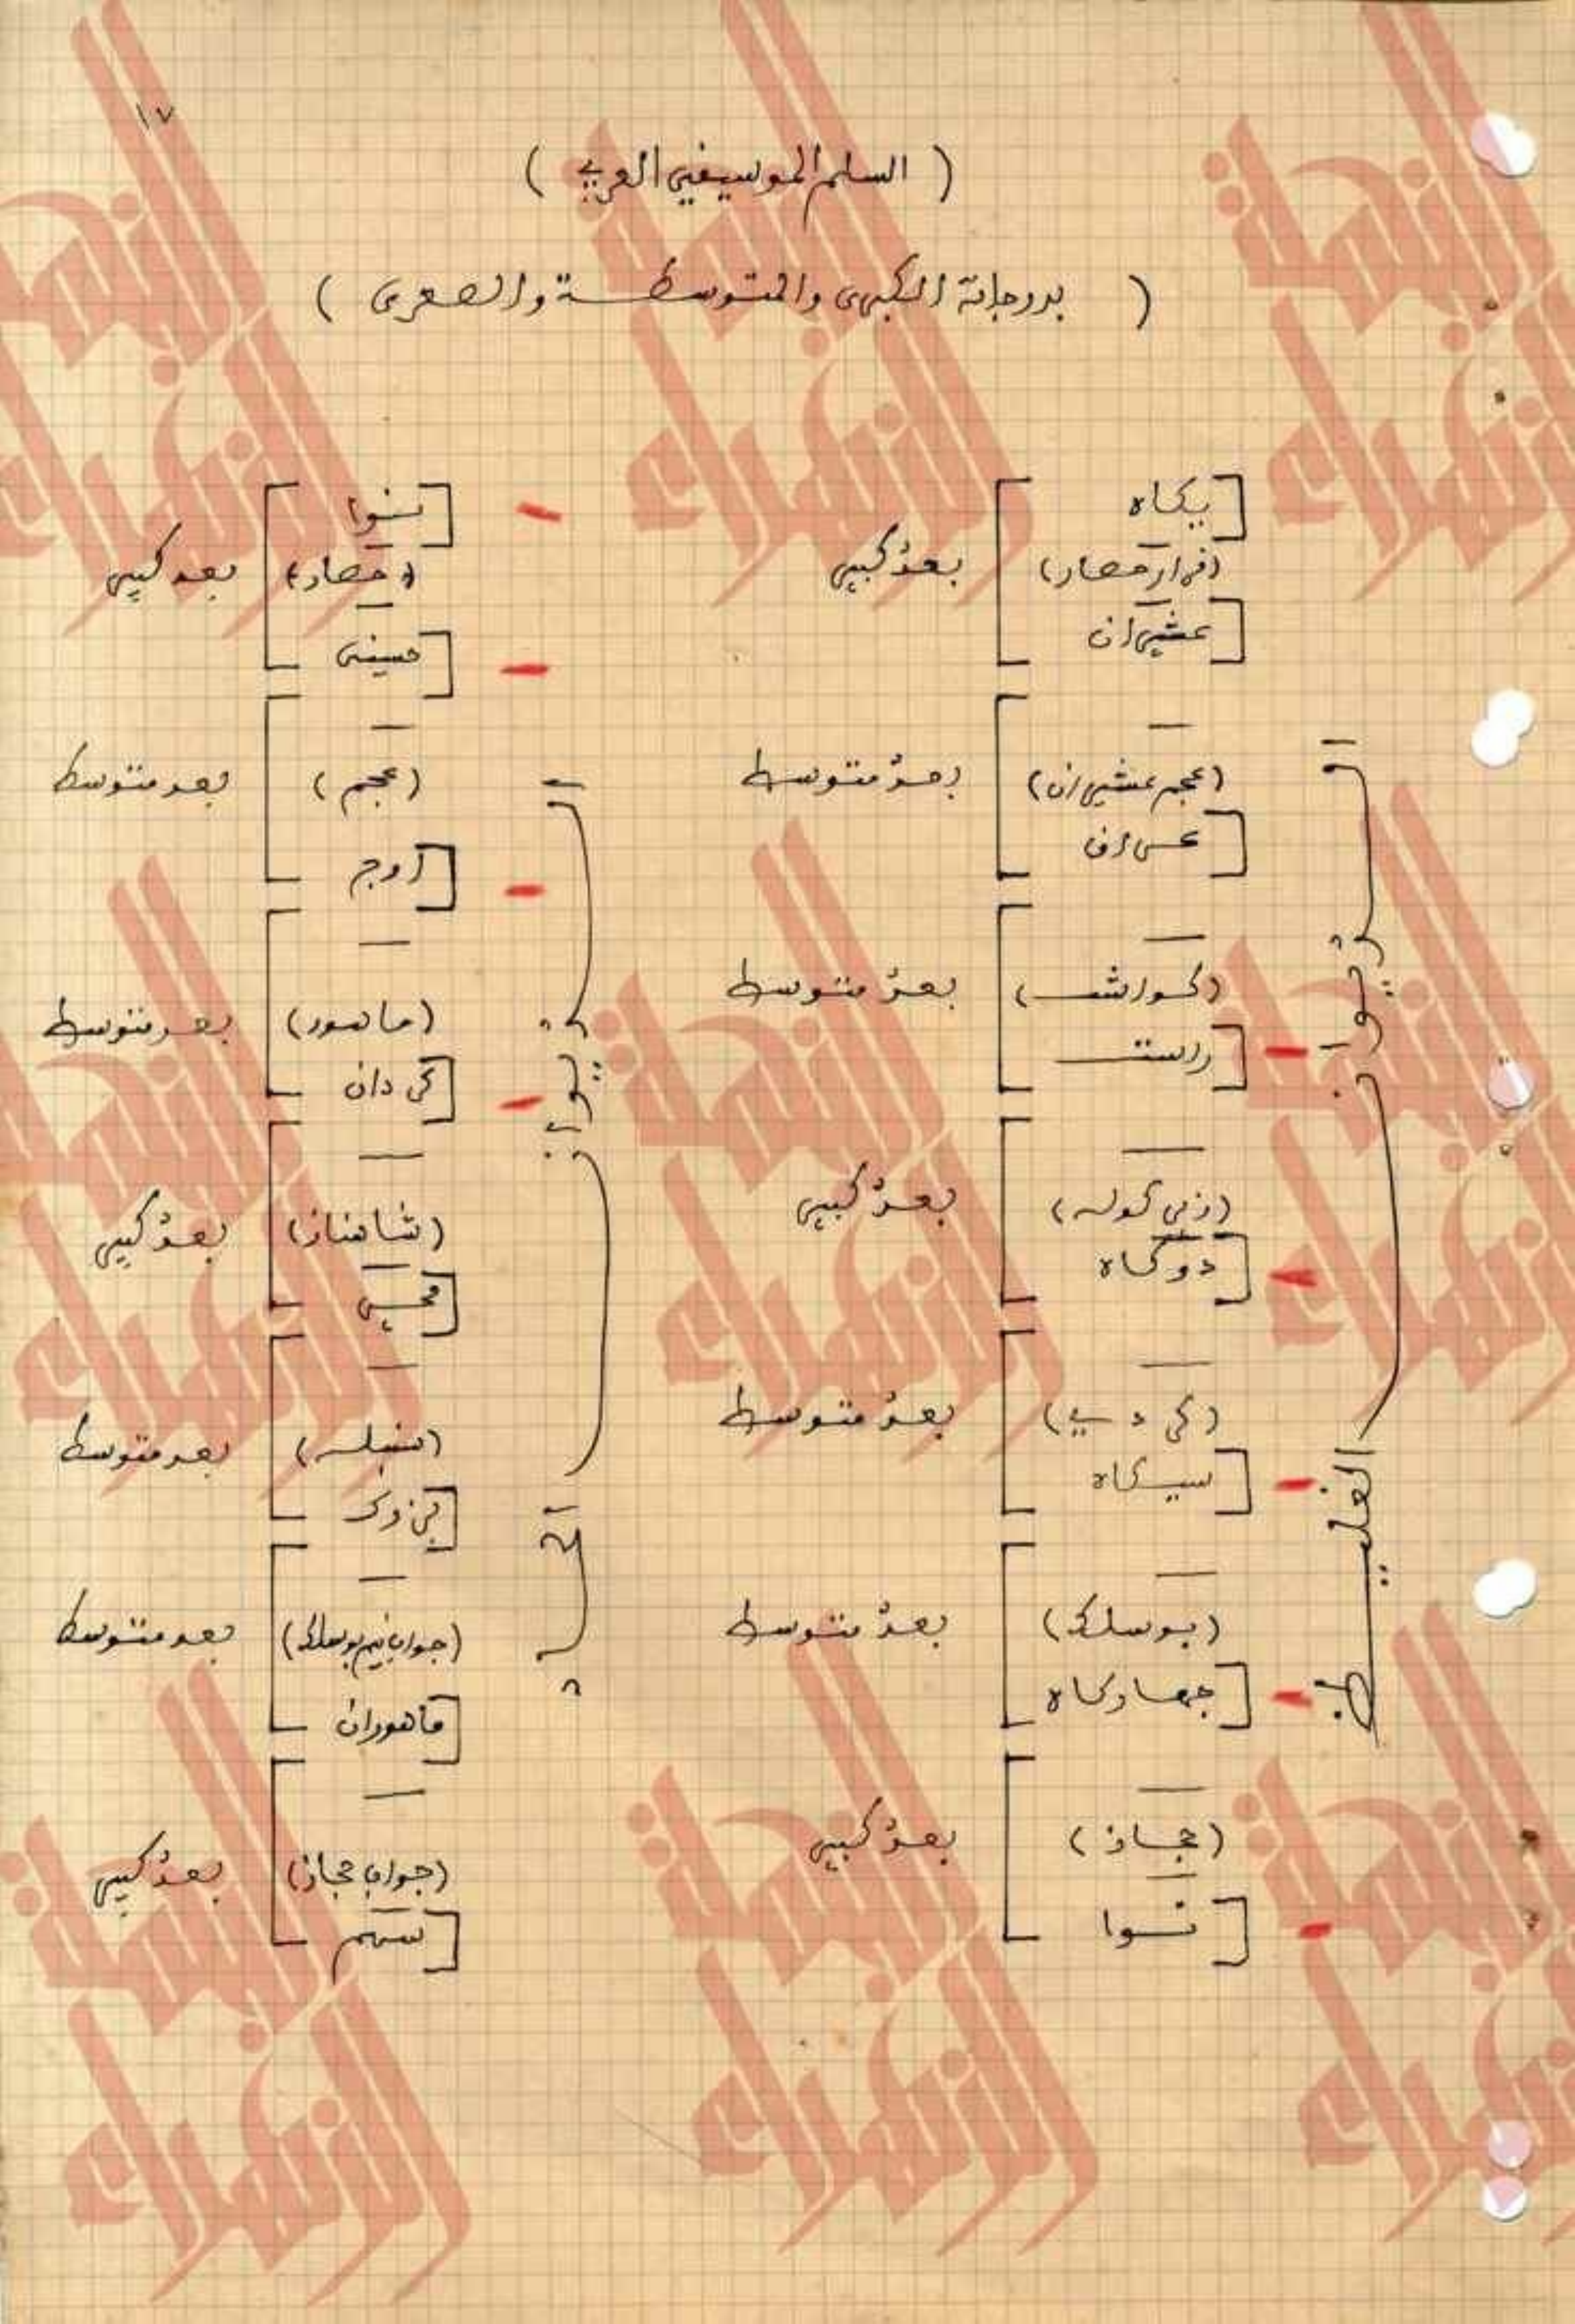 ١٧
( السلم الموسيقي العربي )
( بدرجاته الكبرى والمتوسطة والصغرى )
يكاه
(قرار حصار)
عشيران
بعدٌ كبير
(عجم عشيران)
عراق
بعدٌ متوسط
(كواشت)
راست
بعدٌ متوسط
(زير كوله)
دوكاه
بعدٌ كبير
(كردي)
سيكاه
بعدٌ متوسط
(بوسلك)
جهاركاه
بعدٌ متوسط
(حجاز)
نوا
بعدٌ كبير
الديوان
الغليظ
نوا
(حصار)
حسيني
بعد كبير
(عجم)
اوج
بعد متوسط
(ماهور)
كردان
بعد متوسط
(شاهناز)
محير
بعدٌ كبير
(سنبله)
بزرك
بعد متوسط
(جواب نيم بوسلك)
ماهوران
بعد متوسط
(جواب حجاز)
سهم
بعدٌ كبير
الديوان
الحاد
النهضة
الزهراء